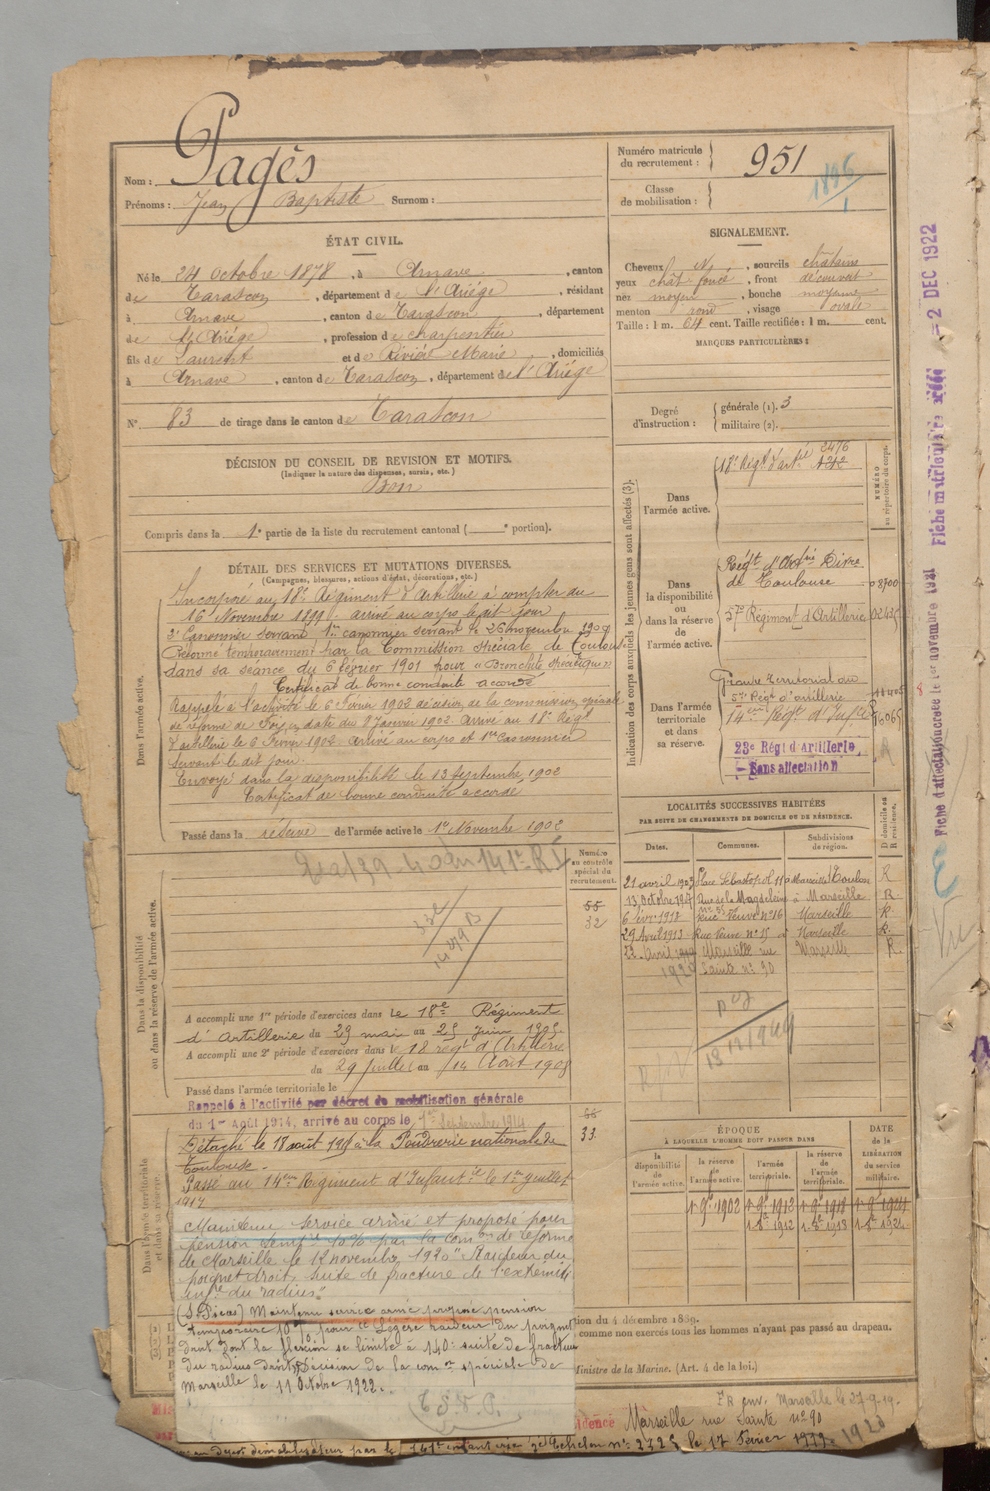 Nom : Pagès
Prénoms : Jean Baptiste Surnom :
Numéro matricule du recrutement : 951
Classe de mobilisation : 1896
1
ÉTAT CIVIL.
Né le 24 Octobre 1878, à Arnave, canton
de Tarascon, département de l'Ariége, résidant
à Arnave, canton de Tarascon, département
de l'Ariége, profession de charpentier
fils de Laurent et de Rivière Marie, domiciliés
à Arnave, canton de Tarascon, département de l'Ariége
N° 83 de tirage dans le canton de Tarascon
DÉCISION DU CONSEIL DE REVISION ET MOTIFS.
(Indiquer la nature des dispenses, sursis, etc.)
Bon
Compris dans la 1e partie de la liste du recrutement cantonal ( e portion).
SIGNALEMENT.
Cheveux N, sourcils châtains
yeux chât foncé, front découvert
nez moyen, bouche moyenne
menton rond, visage ovale
Taille : 1 m. 64 cent. Taille rectifiée : 1 m. cent.
MARQUES PARTICULIÈRES :
Degré d'instruction : générale (1). 3
militaire (2).
DÉTAIL DES SERVICES ET MUTATIONS DIVERSES.
(Campagnes, blessures, actions d'éclat, décorations, etc.)
Dans l'armée active.
Incorporé au 18e Régiment d'Artillerie à compter du
16 Novembre 1899, arrivé au corps le dit jour
2e Canonnier servant 1er canonnier servant le 26 novembre 1900
Réformé temporairement par la Commission Spéciale de Toulouse
dans sa séance du 6 février 1901 pour « Bronchite spécifique »
Certificat de bonne conduite accordé
Rappelé à l'activité le 6 Février 1902 décision de la commission spéciale
de réforme de Foix en date du 2 Janvier 1902. Arrivé au 18e Régt
d'artillerie le 6 Février 1902 arrivé au corps et 1er Canonnier
servant le dit jour.
Envoyé dans la disponibilité le 13 Septembre 1902
Certificat de bonne conduite accordé
Passé dans la réserve de l'armée active le 1er Novembre 1902
Indication des corps auxquels les jeunes gens sont affectés (3).
NUMÉRO au répertoire du corps.
Dans l'armée active. 18e Régt d'artie 2476
Dans la disponibilité ou dans la réserve de l'armée active.
Régt d'Artrie Divre
de Toulouse 08700
57e Régiment d'Artillerie
Dans l'armée territoriale et dans sa réserve.
Groupe territorial du
57e Régt d'artillerie
14em Régt d'Infie
23e Régt d'Artillerie
Sans affectation
LOCALITÉS SUCCESSIVES HABITÉES
PAR SUITE DE CHANGEMENTS DE DOMICILE OU DE RÉSIDENCE.
Dates. Communes. Subdivisions de région. D domicile ou R résidence.
21 avril 1903 Place Sébastopol 11 à Marseille Toulon R
13 Octobre 1907 Rue de la Magdeleine à Marseille R
6 févr 1912 Rue Neuve n° 16 Marseille R
29 Avril 1913 Rue Neuve n° 15 à Marseille R.
22 Avril 1920 Marseille rue Sainte n° 90 Marseille R
Dans la disponibilité ou dans la réserve de l'armée active.
Numéro au contrôle spécial du recrutement.
55
32
A accompli une 1re période d'exercices dans le 18me Régiment
d'Artillerie du 29 mai au 25 juin 1905.
A accompli une 2e période d'exercices dans le 18 régt d'Artillerie
du 29 juillet au 14 Août 1908
Passé dans l'armée territoriale le
Rappelé à l'activité par décret de mobilisation générale
du 1er Août 1914, arrivé au corps le 1er Septembre 1914
66
33
Dans l'armée territoriale et dans sa réserve.
Détaché le 18 août 1915 à la Poudrerie nationale de
Toulouse.
Passé au 14em Régiment d'Infantie le 1er juillet
1917
Maintenu service armé et proposé pour
pension tempre 10% par la comon de réforme
de Marseille le 12 novembre 1920 "Raideur du
poignet droit, suite de fracture de l'extrémité
infre du radius".
Maintenu service armé proposé pension
temporaire 10% pour : Légère raideur du poignet
droit dont la flexion se limite à 140° suite de fracture
du radius droit. Décision de la comon spéciale de
Marseille le 11 Octobre 1922.
ÉPOQUE
À LAQUELLE L'HOMME DOIT PASSER DANS
la disponibilité de l'armée active. la réserve de l'armée active. l'armée territoriale. la réserve de l'armée territoriale. DATE de la LIBÉRATION du service militaire.
1-9e 1902 1-9e 1912 1-9e 1918 1-9e 1924
1-8e 1912 1-8e 1918 1-8e 1924
tion du 4 décembre 1889.
comme non exercés tous les hommes n'ayant pas passé au drapeau.
Ministre de la Marine. (Art. 4 de la loi.)
FR env. Marseille le 27-9-19.
idence Marseille rue Sainte n° 90
1920
par le 141e infanterie 2e Echelon n° 2323 le 17 Février 1919
Fiche d'affectation créée le 1er novembre 1921
Fiche matriculaire créée = 2 DEC 1922